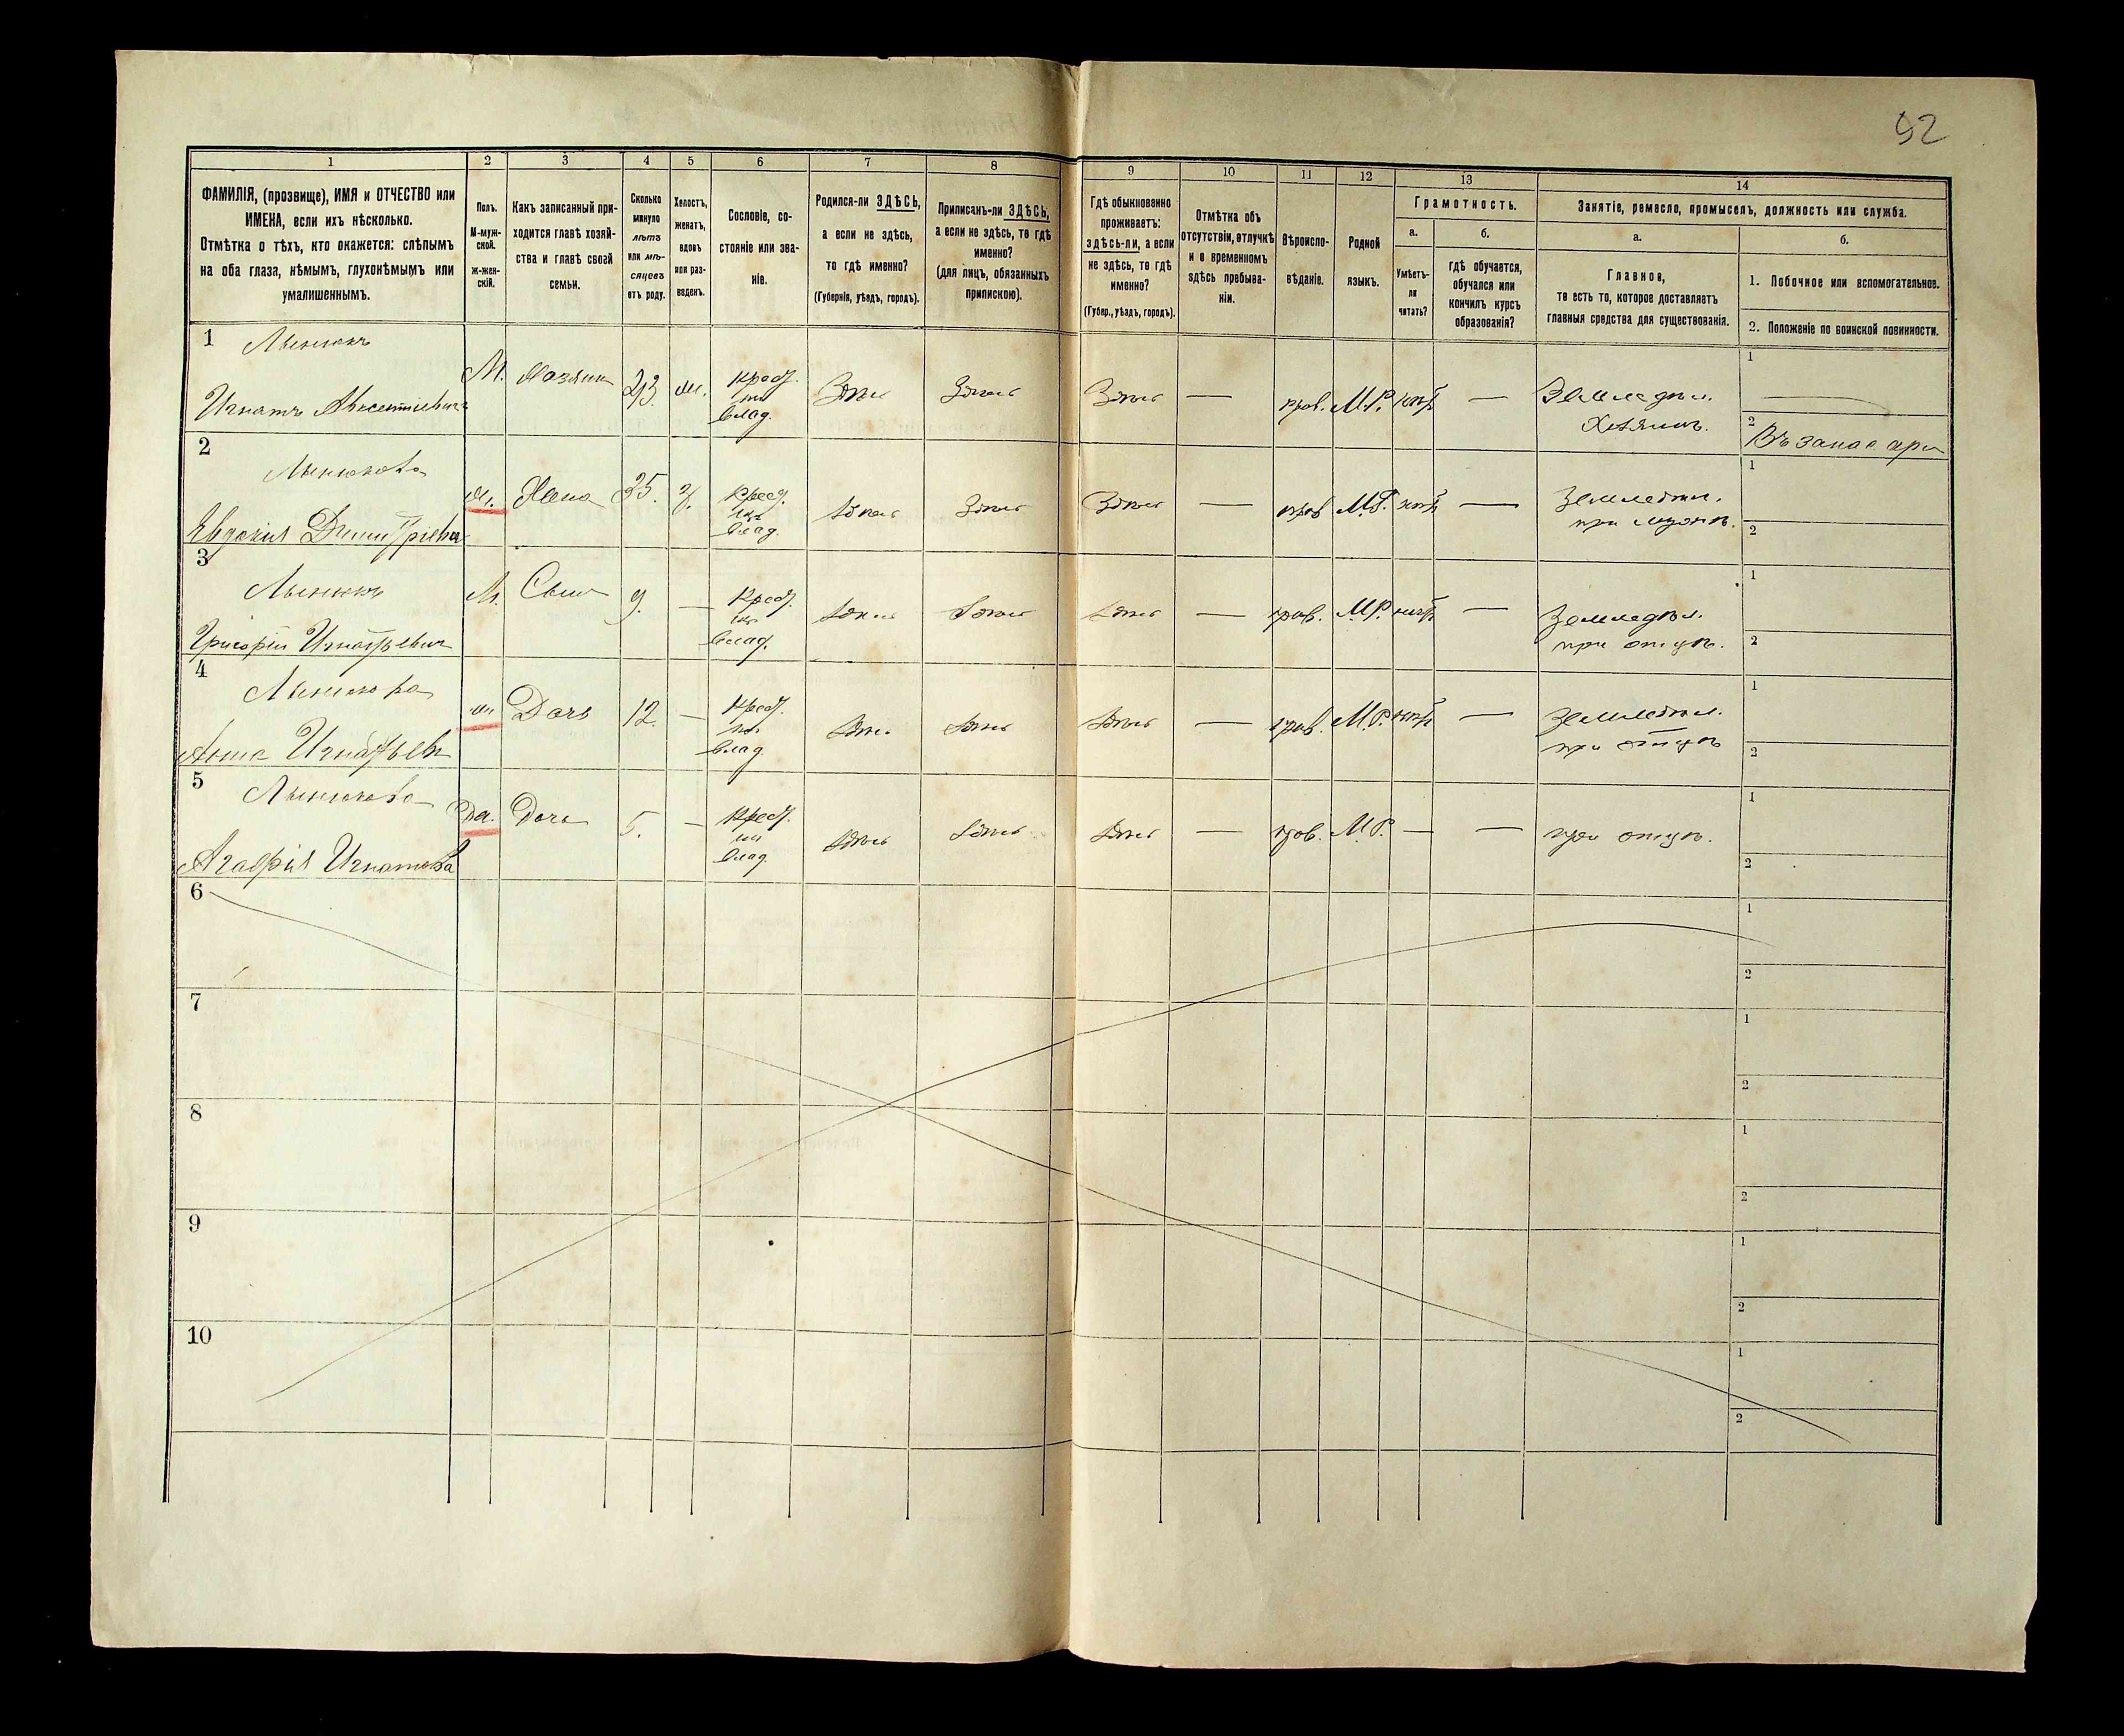 92
1 2 3 4 5 6 7 8 9 10 11 12 13 14
ФАМИЛІЯ, (прозвище), ИМЯ и ОТЧЕСТВО или
ИМЕНА, если ихъ нѣсколько.
Отмѣтка о тѣхъ, кто окажется: слѣпымъ
на оба глаза, нѣмымъ, глухонѣмымъ или
умалишеннымъ.
Полъ.
М-муж-
ской.
ж-жен-
скій.
Какъ записанный при-
ходится главѣ хозяй-
ства и главѣ своей
семьи.
Сколько
минуло
лѣтъ
или мѣ-
сяцевъ
отъ роду.
Холостъ,
женатъ,
вдовъ
или раз-
веденъ.
Сословіе, со-
стояніе или зва-
ніе.
Родился-ли ЗДѢСЬ,
а если не здѣсь,
то гдѣ именно?
(Губернія, уѣздъ, городъ).
Приписанъ-ли ЗДѢСЬ,
а если не здѣсь, то гдѣ
именно?
(для лицъ, обязанныхъ
припискою).
Гдѣ обыкновенно
проживаетъ:
здѣсь-ли, а если
не здѣсь, то гдѣ
именно?
(Губер., уѣздъ, городъ).
Отмѣтка объ
отсутствіи, отлучкѣ
и о временномъ
здѣсь пребыва-
ніи.
Вѣроиспо-
вѣданіе.
Родной
языкъ.
Грамотность.
а.
Умѣетъ-
ли
читать?
б.
гдѣ обучается,
обучался или
кончилъ курсъ
образованія?
Занятіе, ремесло, промыселъ, должность или служба.
а.
Главное,
то есть то, которое доставляетъ
главныя средства для существованія.
б.
1. Побочное или вспомогательное.
2. Положеніе по воинской повинности.
1
Игнатъ Авксентіевичъ
М. Хозяинъ
Крест.
влад.
Здѣсь Здѣсь Здѣсь — прав. М.Р. нѣтъ —
Земледѣл.
Хозяинъ.
1 —
2 Въ запасѣ
2
Евдокія Димитріевна
Жена 35.
Крест.
влад.
Здѣсь Здѣсь Здѣсь — прав. М.Р. нѣтъ —
Земледѣл.
при мужѣ.
1
2
3
Григорій Игнатьевич
М. Сынъ 9. —
Крест.
влад.
Здѣсь Здѣсь Здѣсь — прав. М.Р. нѣтъ —
Земледѣл.
при отцѣ.
1
2
4
Анна Игнатьев
Дочь 12. —
Крест.
влад.
Здѣсь Здѣсь Здѣсь — прав. М.Р. нѣтъ —
Земледѣл.
при отцѣ
1
2
5
Агафія Игнатова
Дочь 5. —
Крест.
влад.
Здѣсь Здѣсь Здѣсь — прав. М.Р. — —
при отцѣ.
1
2
6
1
2
7
1
2
8
1
2
9
1
2
10
1
2